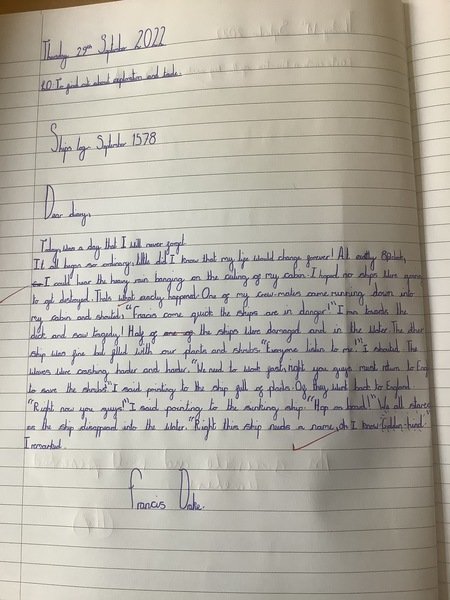 Thursday 29th September 2022
L.O: To find out about exploration and trade.
Ships log- September 1578
Dear diary,
Today, was a day that I will never forget.
It all began so ordinary, little did I know that my life would change forever! At exactly 8 o'clock,
I could hear the heavy rain banging on the ceiling of my cabin. I hoped no ships were going
to get destroyed. Thats what exactly happened. One of my crew-mates came running down into
my cabin and shouted, "Francis come quick the ships are in danger!" I ran towards the
deck and saw tragedy! Half of the ships were damaged and in the water. The other
ship was fine but filled with our plants and shrubs. "Everyone listen to me!" I shouted. The
waves were crashing harder and harder. "We need to work fast, right you guys must return to
to save the shrubs" I said pointing to the ship full of plants. Off they went back to England
"Right now you guys!" I said pointing to the sinking ship. "Hop on board!" We all stared
as the ship disappeard into the water. "Right this ship needs a name, oh I know Golden-hind!"
I remarked.
Francis Drake.